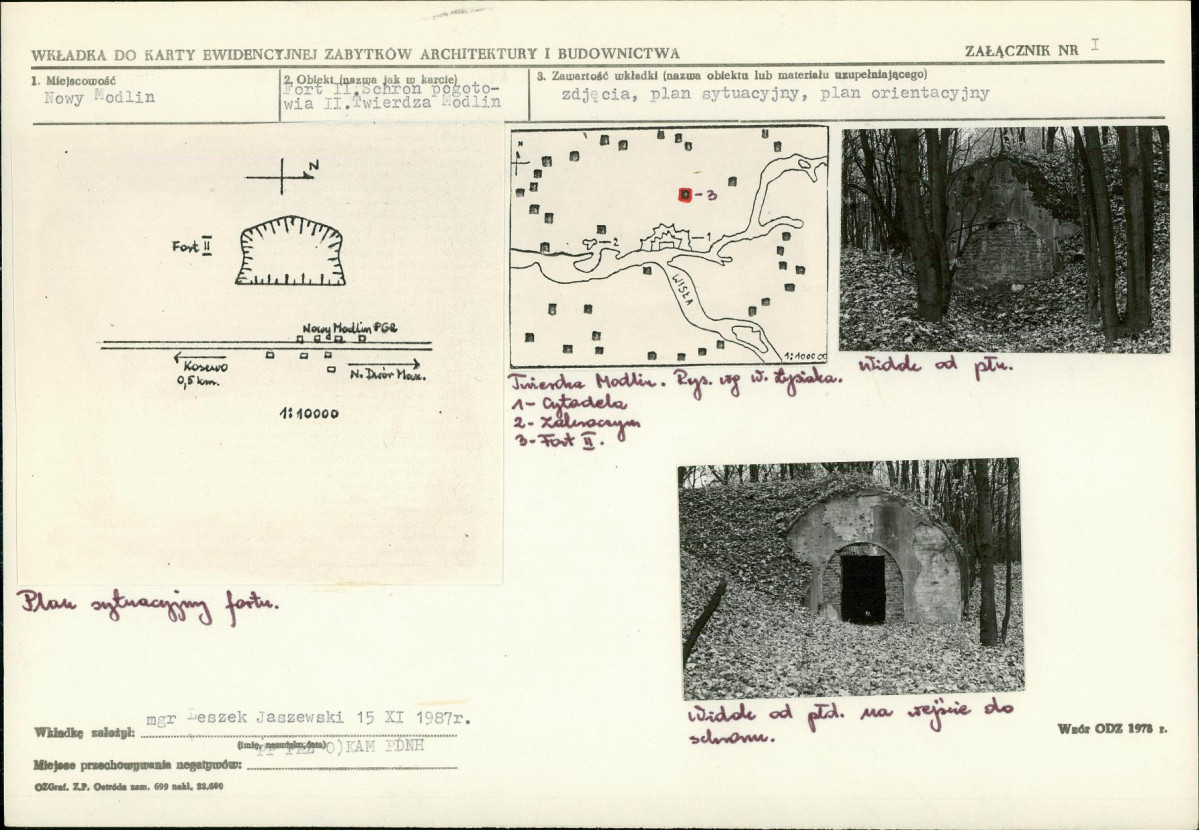 WKŁADKA DO KARTY EWIDENCYJNEJ ZABYTKÓW ARCHITEKTURY I BUDOWNICTWA
ZAŁĄCZNIK NR I
1. Miejscowość
Nowy Modlin
2. Obiekt (nazwa jak w karcie)
Fort II. Schron pogoto-
wia II. Twierdza Modlin
3. Zawartość wkładki (nazwa obiektu lub materiału uzupełniającego)
zdjęcia, plan sytuacyjny, plan orientacyjny
N
Fort II
Nowy Modlin PGR
Kosewo
0,5 km.
N. Dwór Maz.
1:10000
Plan sytuacyjny fortu.
N
3
2
1
WISŁA
1:100000
Twierdza Modlin. Rys. wg W. Łysiaka.
1- Cytadela
2- Zakroczym
3- Fort II.
Widok od płn.
Widok od płd. na wejście do
schronu.
Wkładkę założył: mgr Leszek Jaszewski 15 XI 1987r.
(imię, nazwisko, data)
PP PKZ O)KAM PDNH
Miejsce przechowywania negatywów:
OZGraf. Z.P. Ostróda zam. 699 nakł. 23.600
Wzór ODZ 1978 r.